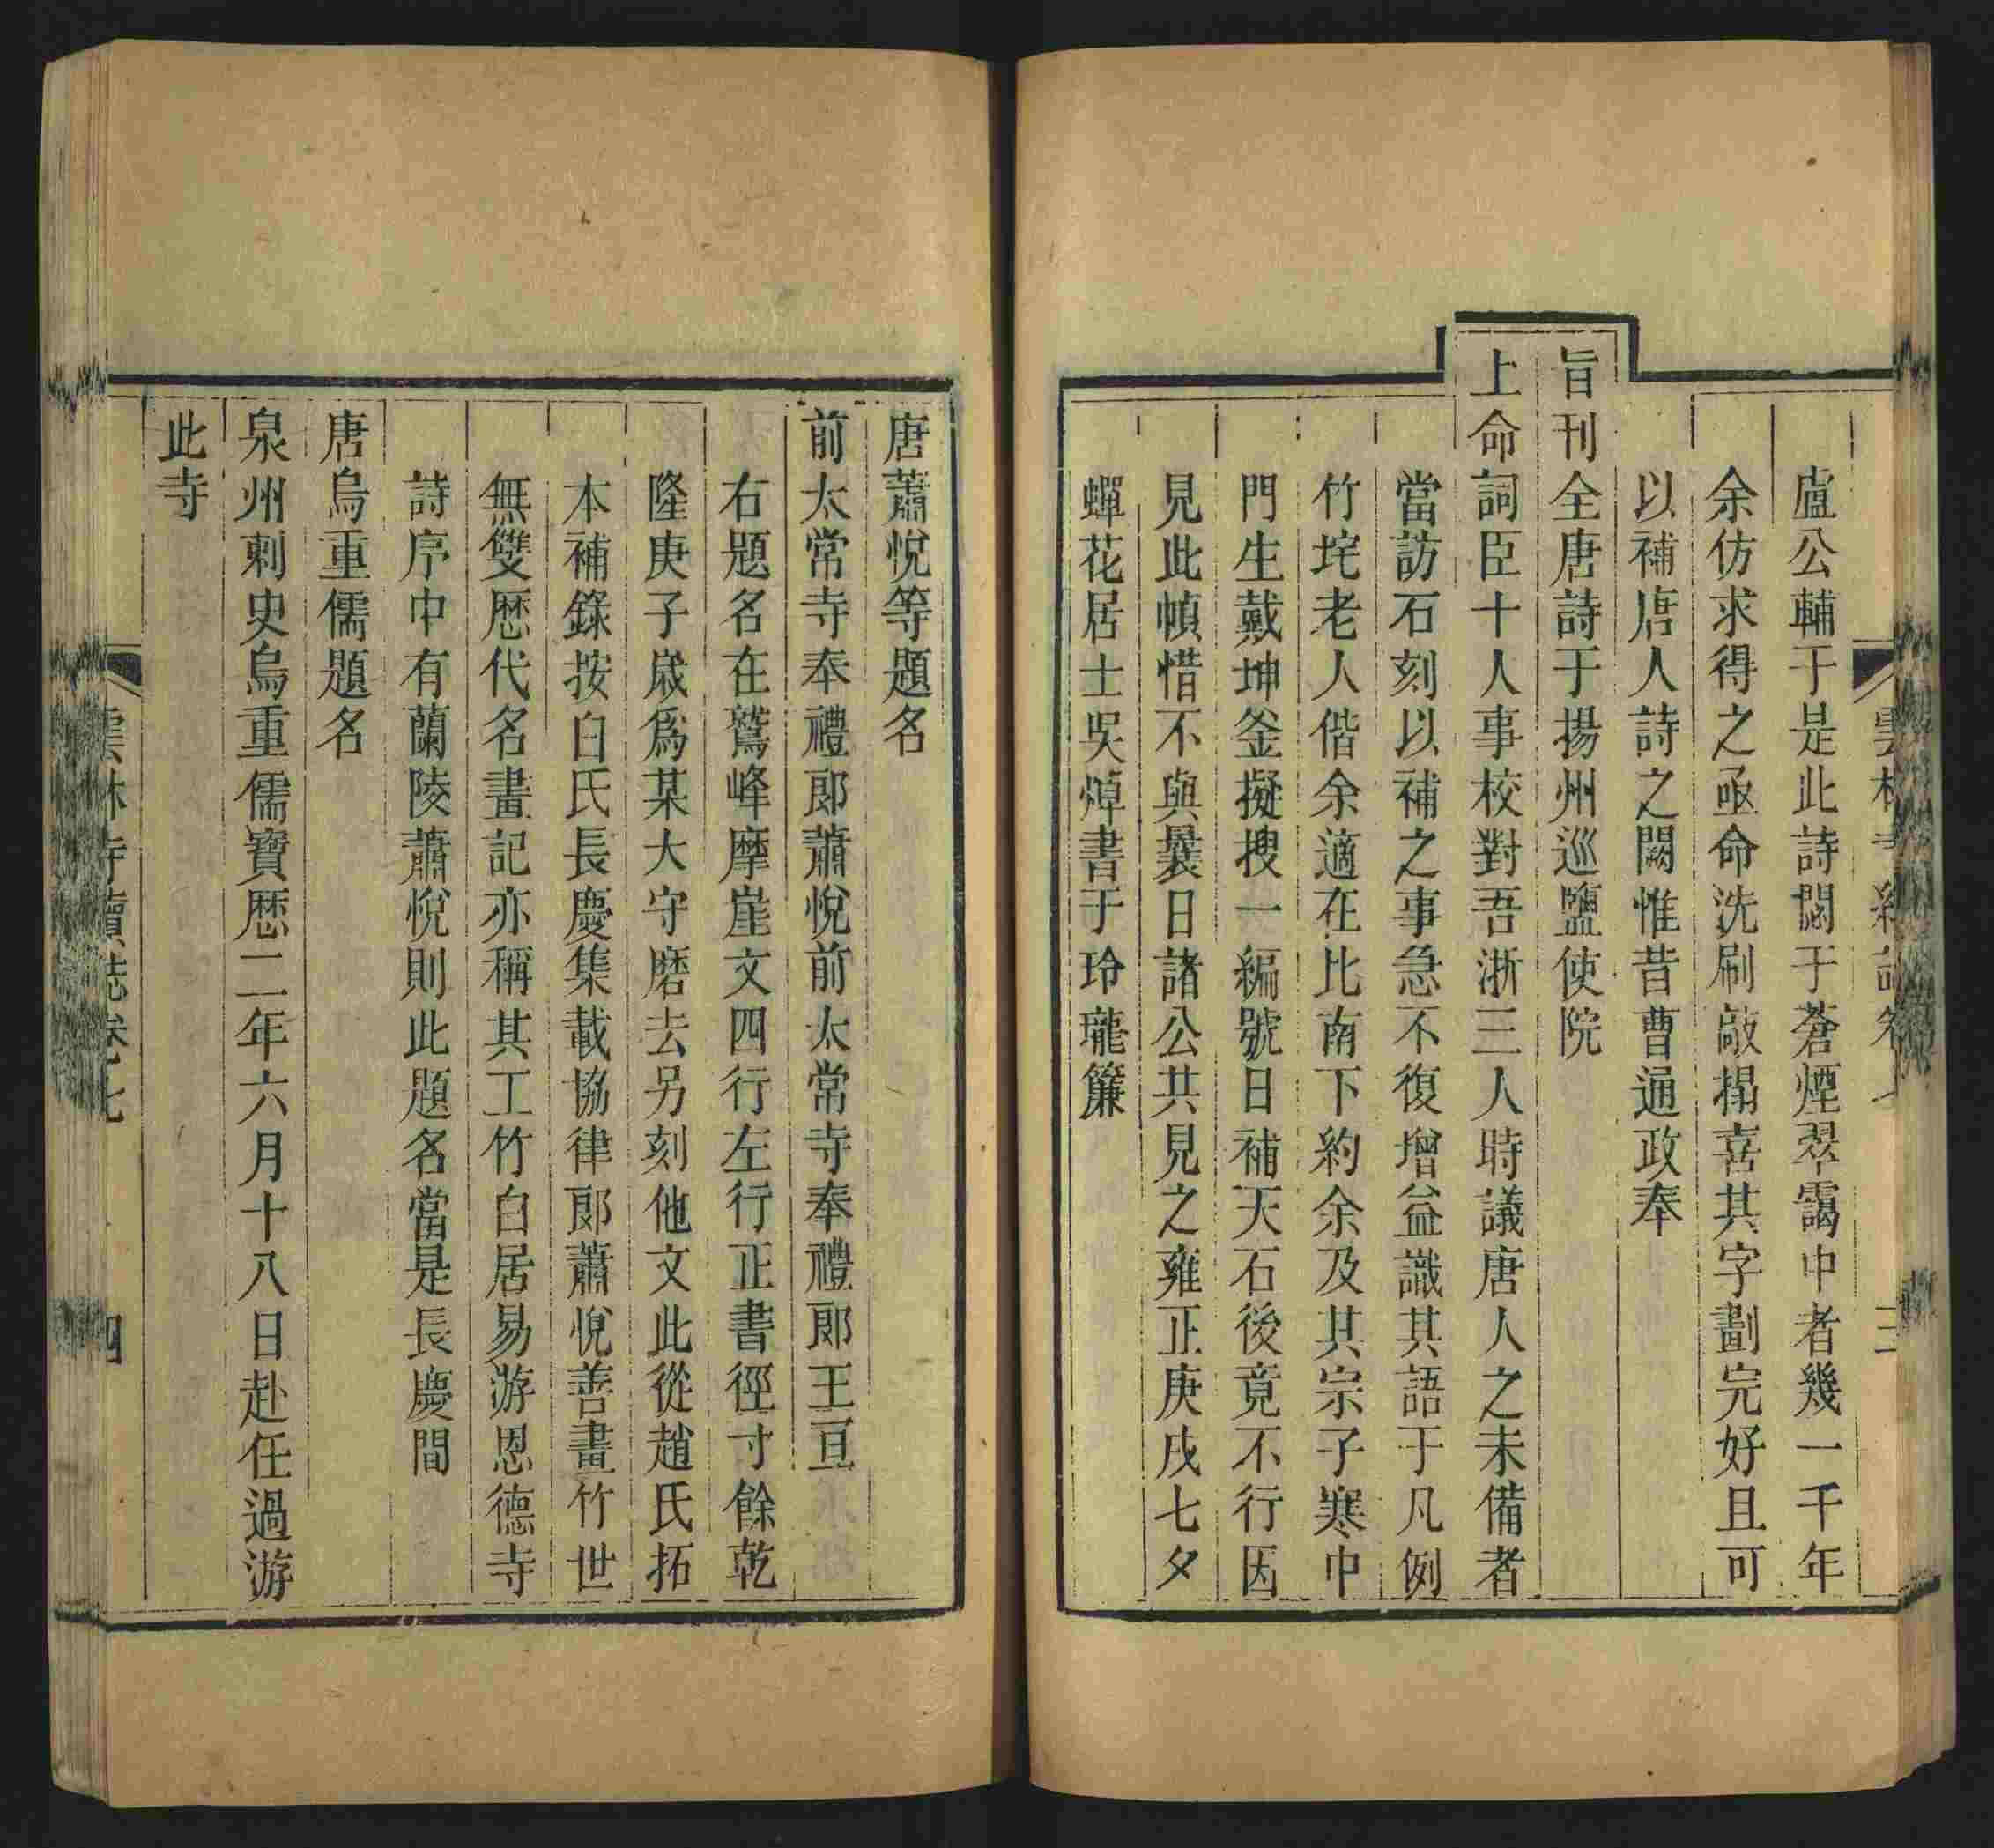 盧公輔于是此詩閟于蒼煙翠靄中者幾一千年
余仿求得之亟命洗刷敲搨喜其字劃完好且可
以補唐人詩之闕惟昔曹通政奉
旨刊全唐詩于揚州巡鹽使院
上命詞臣十人事校對吾浙三人時議唐人之未備者
當訪石刻以補之事急不復增益識其語于凡例
竹垞老人偕余適在比南下約余及其宗子寒中
門生戴坤釜擬搜一編號曰補天石後竟不行因
見此幀惜不與曩日諸公共見之雍正庚戌七夕
蟬花居士吳焯書于玲瓏簾
唐蕭悅等題名
前太常寺奉禮郎蕭悅前太常寺奉禮郎王亘
右題名在鷲峰摩崖文四行左行正書徑寸餘乾
隆庚子歲爲某大守磨去另刻他文此從趙氏拓
本補錄按白氏長慶集載協律郎蕭悅善畫竹世
無雙歷代名畫記亦稱其工竹白居易游恩德寺
詩序中有蘭陵蕭悅則此題名當是長慶間
唐烏重儒題名
泉州刺史烏重儒寶歷二年六月十八日赴任過游
此寺
雲林寺續誌卷七
四